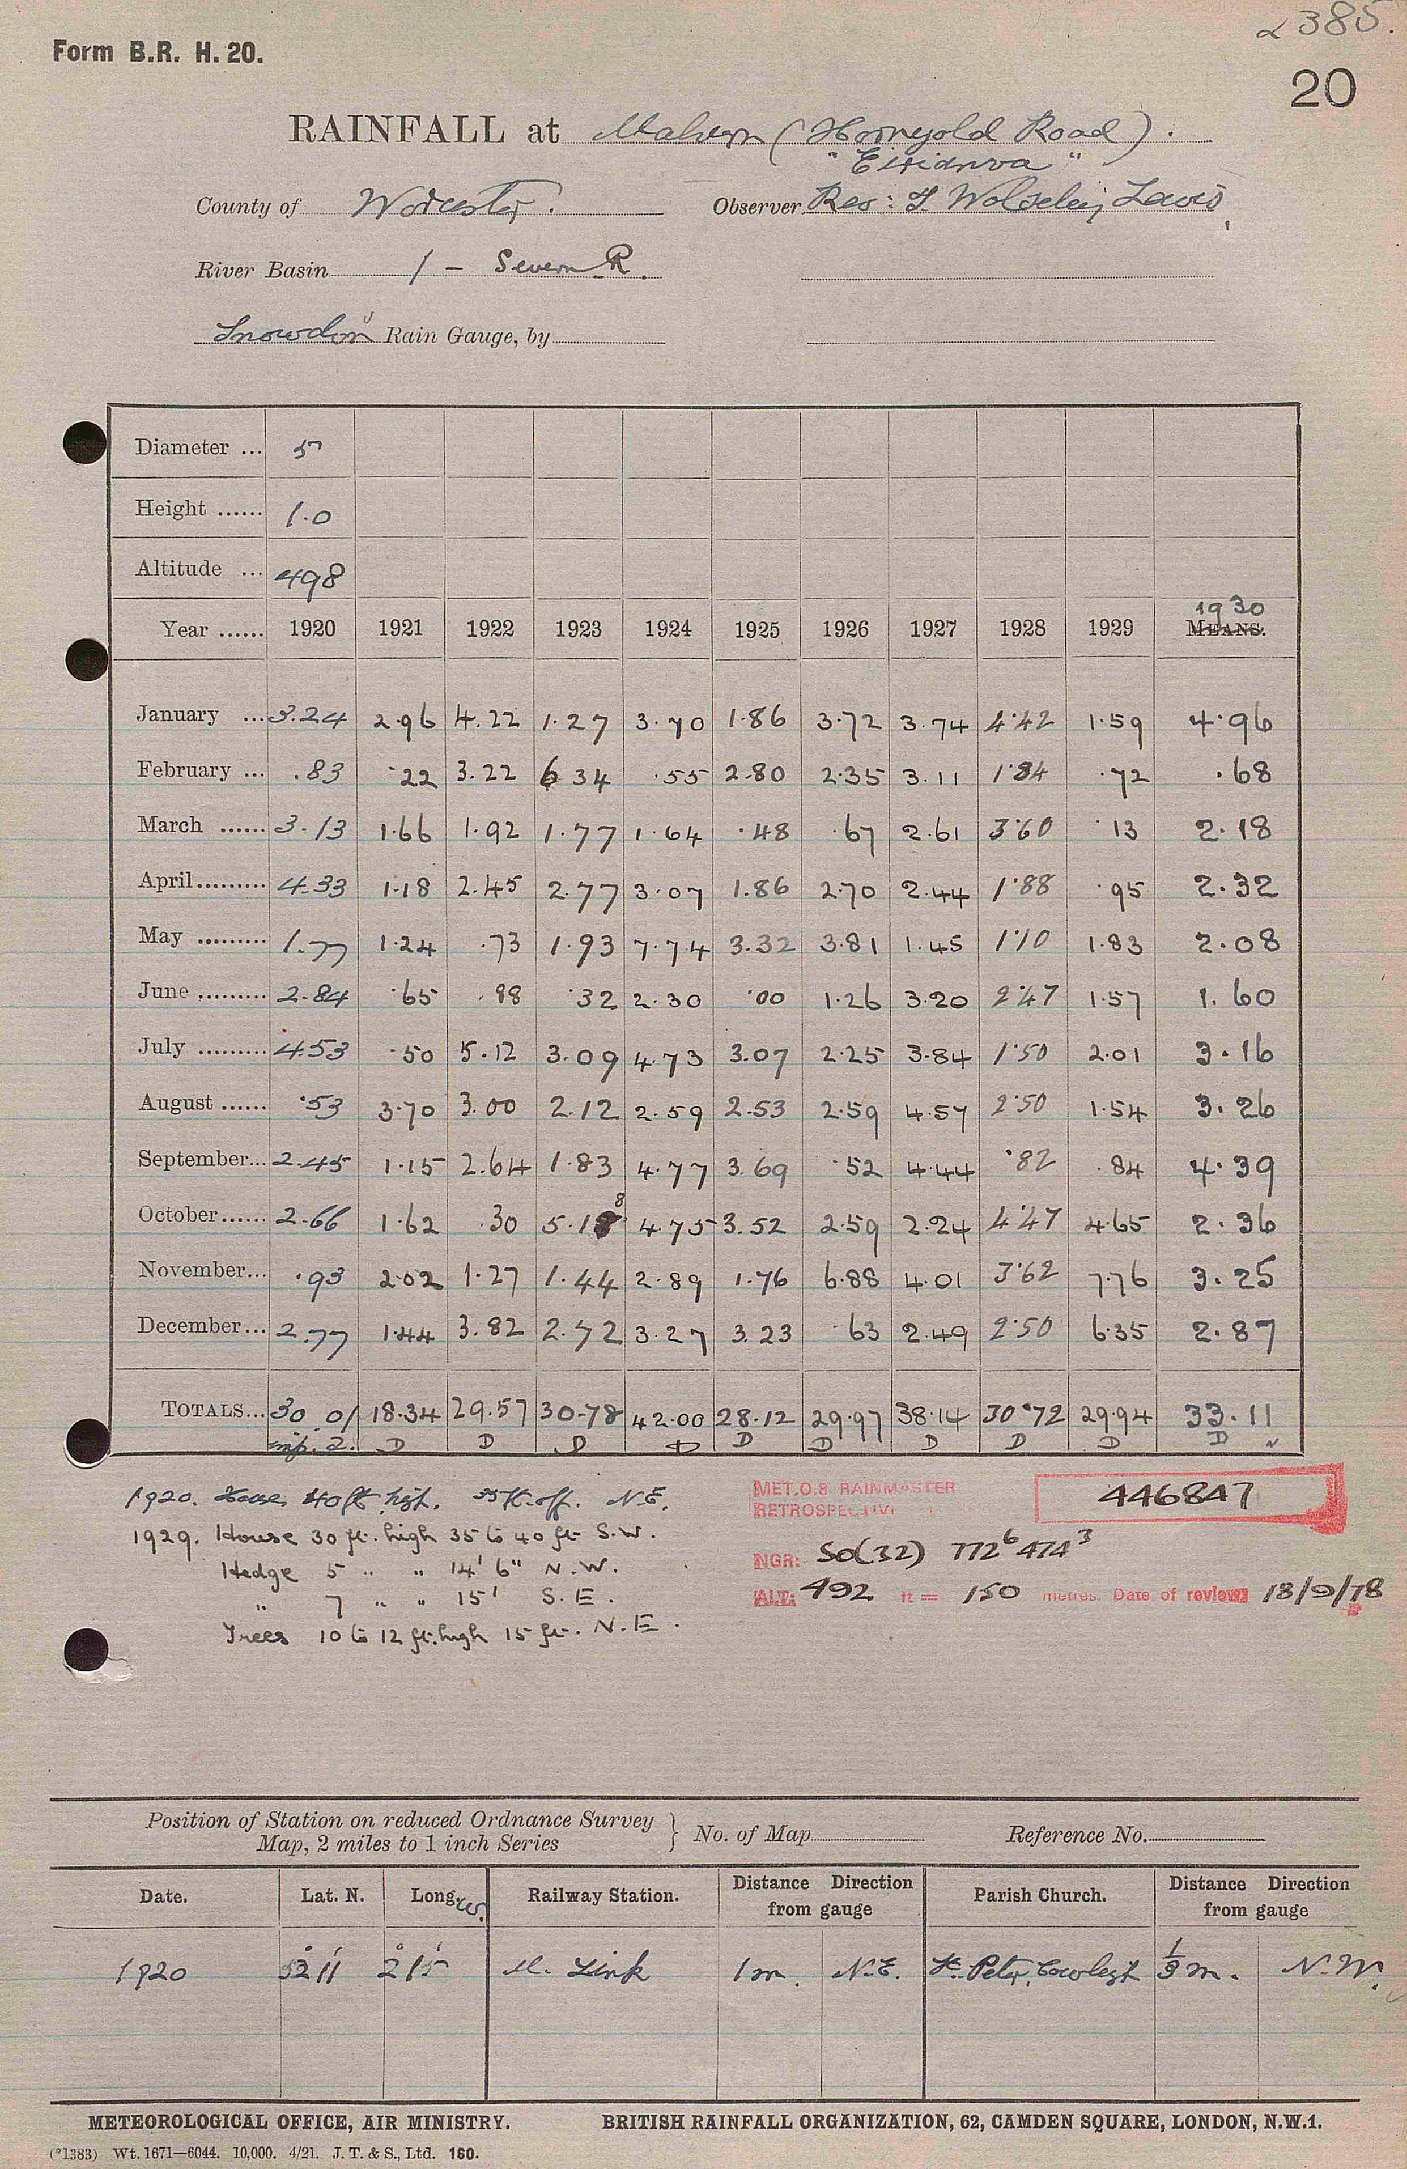 2385.
Form B.R. H. 20.
20
RAINFALL at Malvern (Hornyold Road).
" "
County of Worcester. Observer Rev: F Wolseley Lewis
River Basin 1 - Severn R.
Snowdon Rain Gauge, by
Diameter ... 5
Height ...... 1.0
Altitude ... 498
Year ...... 1920 1921 1922 1923 1924 1925 1926 1927 1928 1929 1930 MEANS.
January ... 3.24 2.96 4.22 1.27 3.70 1.86 3.72 3.74 4.42 1.59 4.96
February ... .83 .22 3.22 6 34 .55 2.80 2.35 3.11 1.84 .72 .68
March ...... 3.13 1.66 1.92 1.77 1.64 .48 .67 2.61 3.60 .13 2.18
April......... 4.33 1.18 2.45 2.77 3.07 1.86 2.70 2.44 1.88 .95 2.32
May ......... 1.77 1.24 .73 1.93 7.74 3.32 3.81 1.45 1.10 1.83 2.08
June ......... 2.84 .65 .98 .32 2.30 .00 1.26 3.20 2.47 1.57 1.60
July ......... 4.53 .50 5.12 3.09 4.73 3.07 2.25 3.84 1.50 2.01 3.16
August ...... .53 3.70 3.00 2.12 2.59 2.53 2.59 4.57 2.50 1.54 3.26
September... 2.45 1.15 2.64 1.83 4.77 3.69 .52 4.44 .82 .84 4.39
October...... 2.66 1.62 .30 5.18 4.75 3.52 2.59 2.24 4.47 4.65 2.36
November... .93 2.02 1.27 1.44 2.89 1.76 6.88 4.01 3.62 7.76 3.25
December... 2.77 1.44 3.82 2.72 3.27 3.23 .63 2.49 2.50 6.35 2.87
TOTALS... 30.01 18.34 29.57 30.78 42.00 28.12 29.97 38.14 30.72 29.94 33.11
D D D D D D D D D D
1920. House 40 ft high. 35 ft. off. N.E.
1929. House 30 ft. high 35 to 40 ft S.W.
Hedge 5 " " 14' 6" N.W.
" 7 " " 15' S.E.
Trees 10 to 12 ft. high 15 ft. N.E.
MET.O.8 RAINMASTER
RETROSPECTIVE
446847
NGR: SO(32) 772⁶ 474³
ALT: 492 ft = 150 metres. Date of review 13/9/78
Position of Station on reduced Ordnance Survey
Map, 2 miles to 1 inch Series } No. of Map Reference No.
Date. Lat. N. Long W. Railway Station. Distance Direction from gauge Parish Church. Distance Direction from gauge
1920 52° 11' 2° 15' M. Link 1 m. N.E. St. Peter, Cowleigh 1/3 m. N.W.
METEOROLOGICAL OFFICE, AIR MINISTRY. BRITISH RAINFALL ORGANIZATION, 62, CAMDEN SQUARE, LONDON, N.W.1.
(*1383) Wt. 1671—6044. 10,000. 4/21. J. T. & S., Ltd. 160.